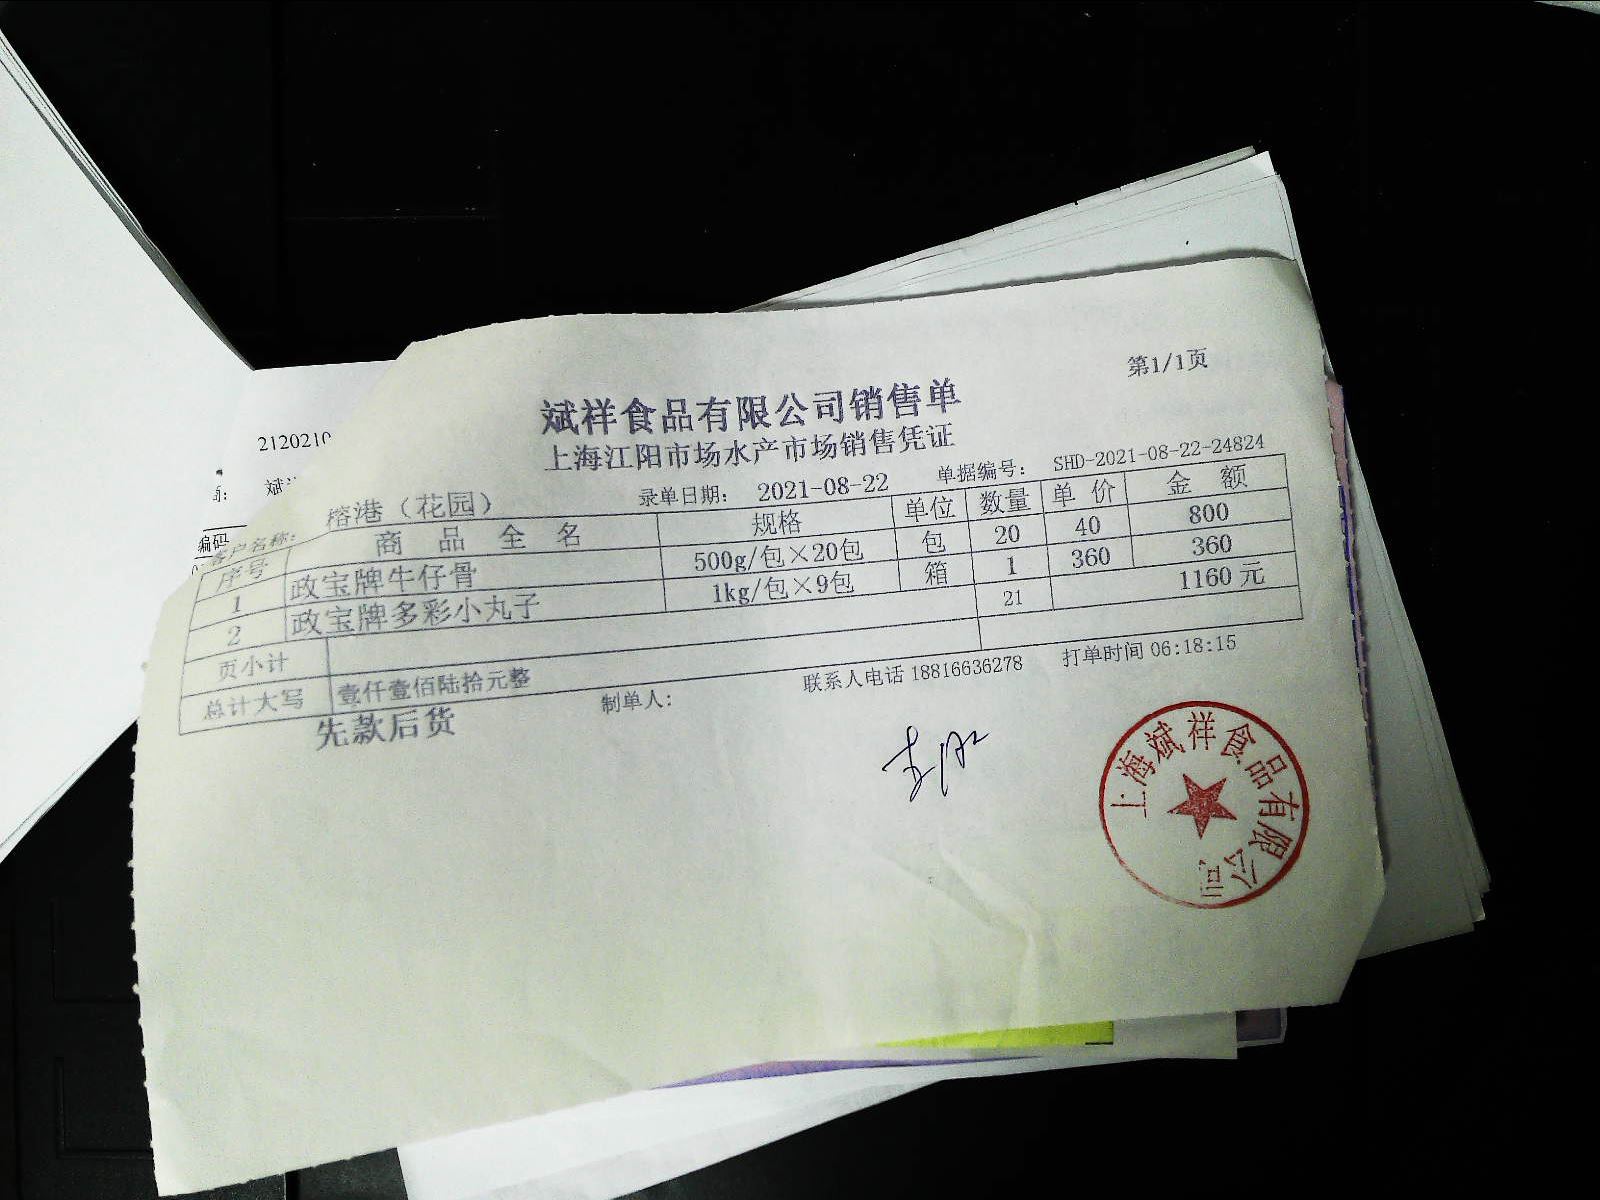 第1/1页
斌祥食品有限公司销售单
上海江阳市场水产市场销售凭证
2120210
商: 斌
编码
客户名称: 榕港（花园） 录单日期: 2021-08-22 单据编号: SHD-2021-08-22-24824
序号 商 品 全 名 规格 单位 数量 单 价 金 额
1 政宝牌牛仔骨 500g/包×20包 包 20 40 800
2 政宝牌多彩小丸子 1kg/包×9包 箱 1 360 360
页小计 21 1160 元
总计大写 壹仟壹佰陆拾元整
先款后货 制单人: 联系人电话 18816636278 打单时间 06:18:15
上海斌祥食品有限公司